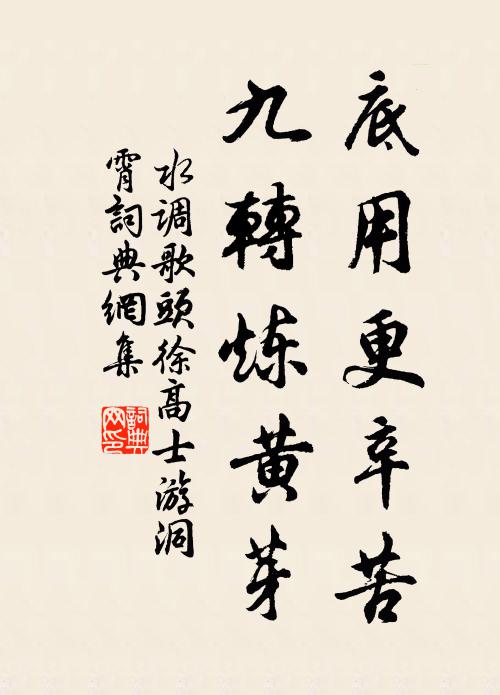 底用更辛苦
九轉炼黄芽
水调歌頭徐高士游洞
霄詞典網集
詞典网印